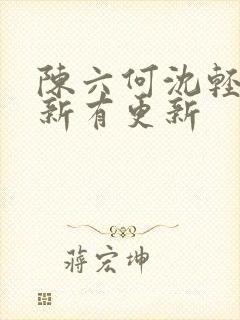 陳六何沈輕
新有更新
蔣宏坤